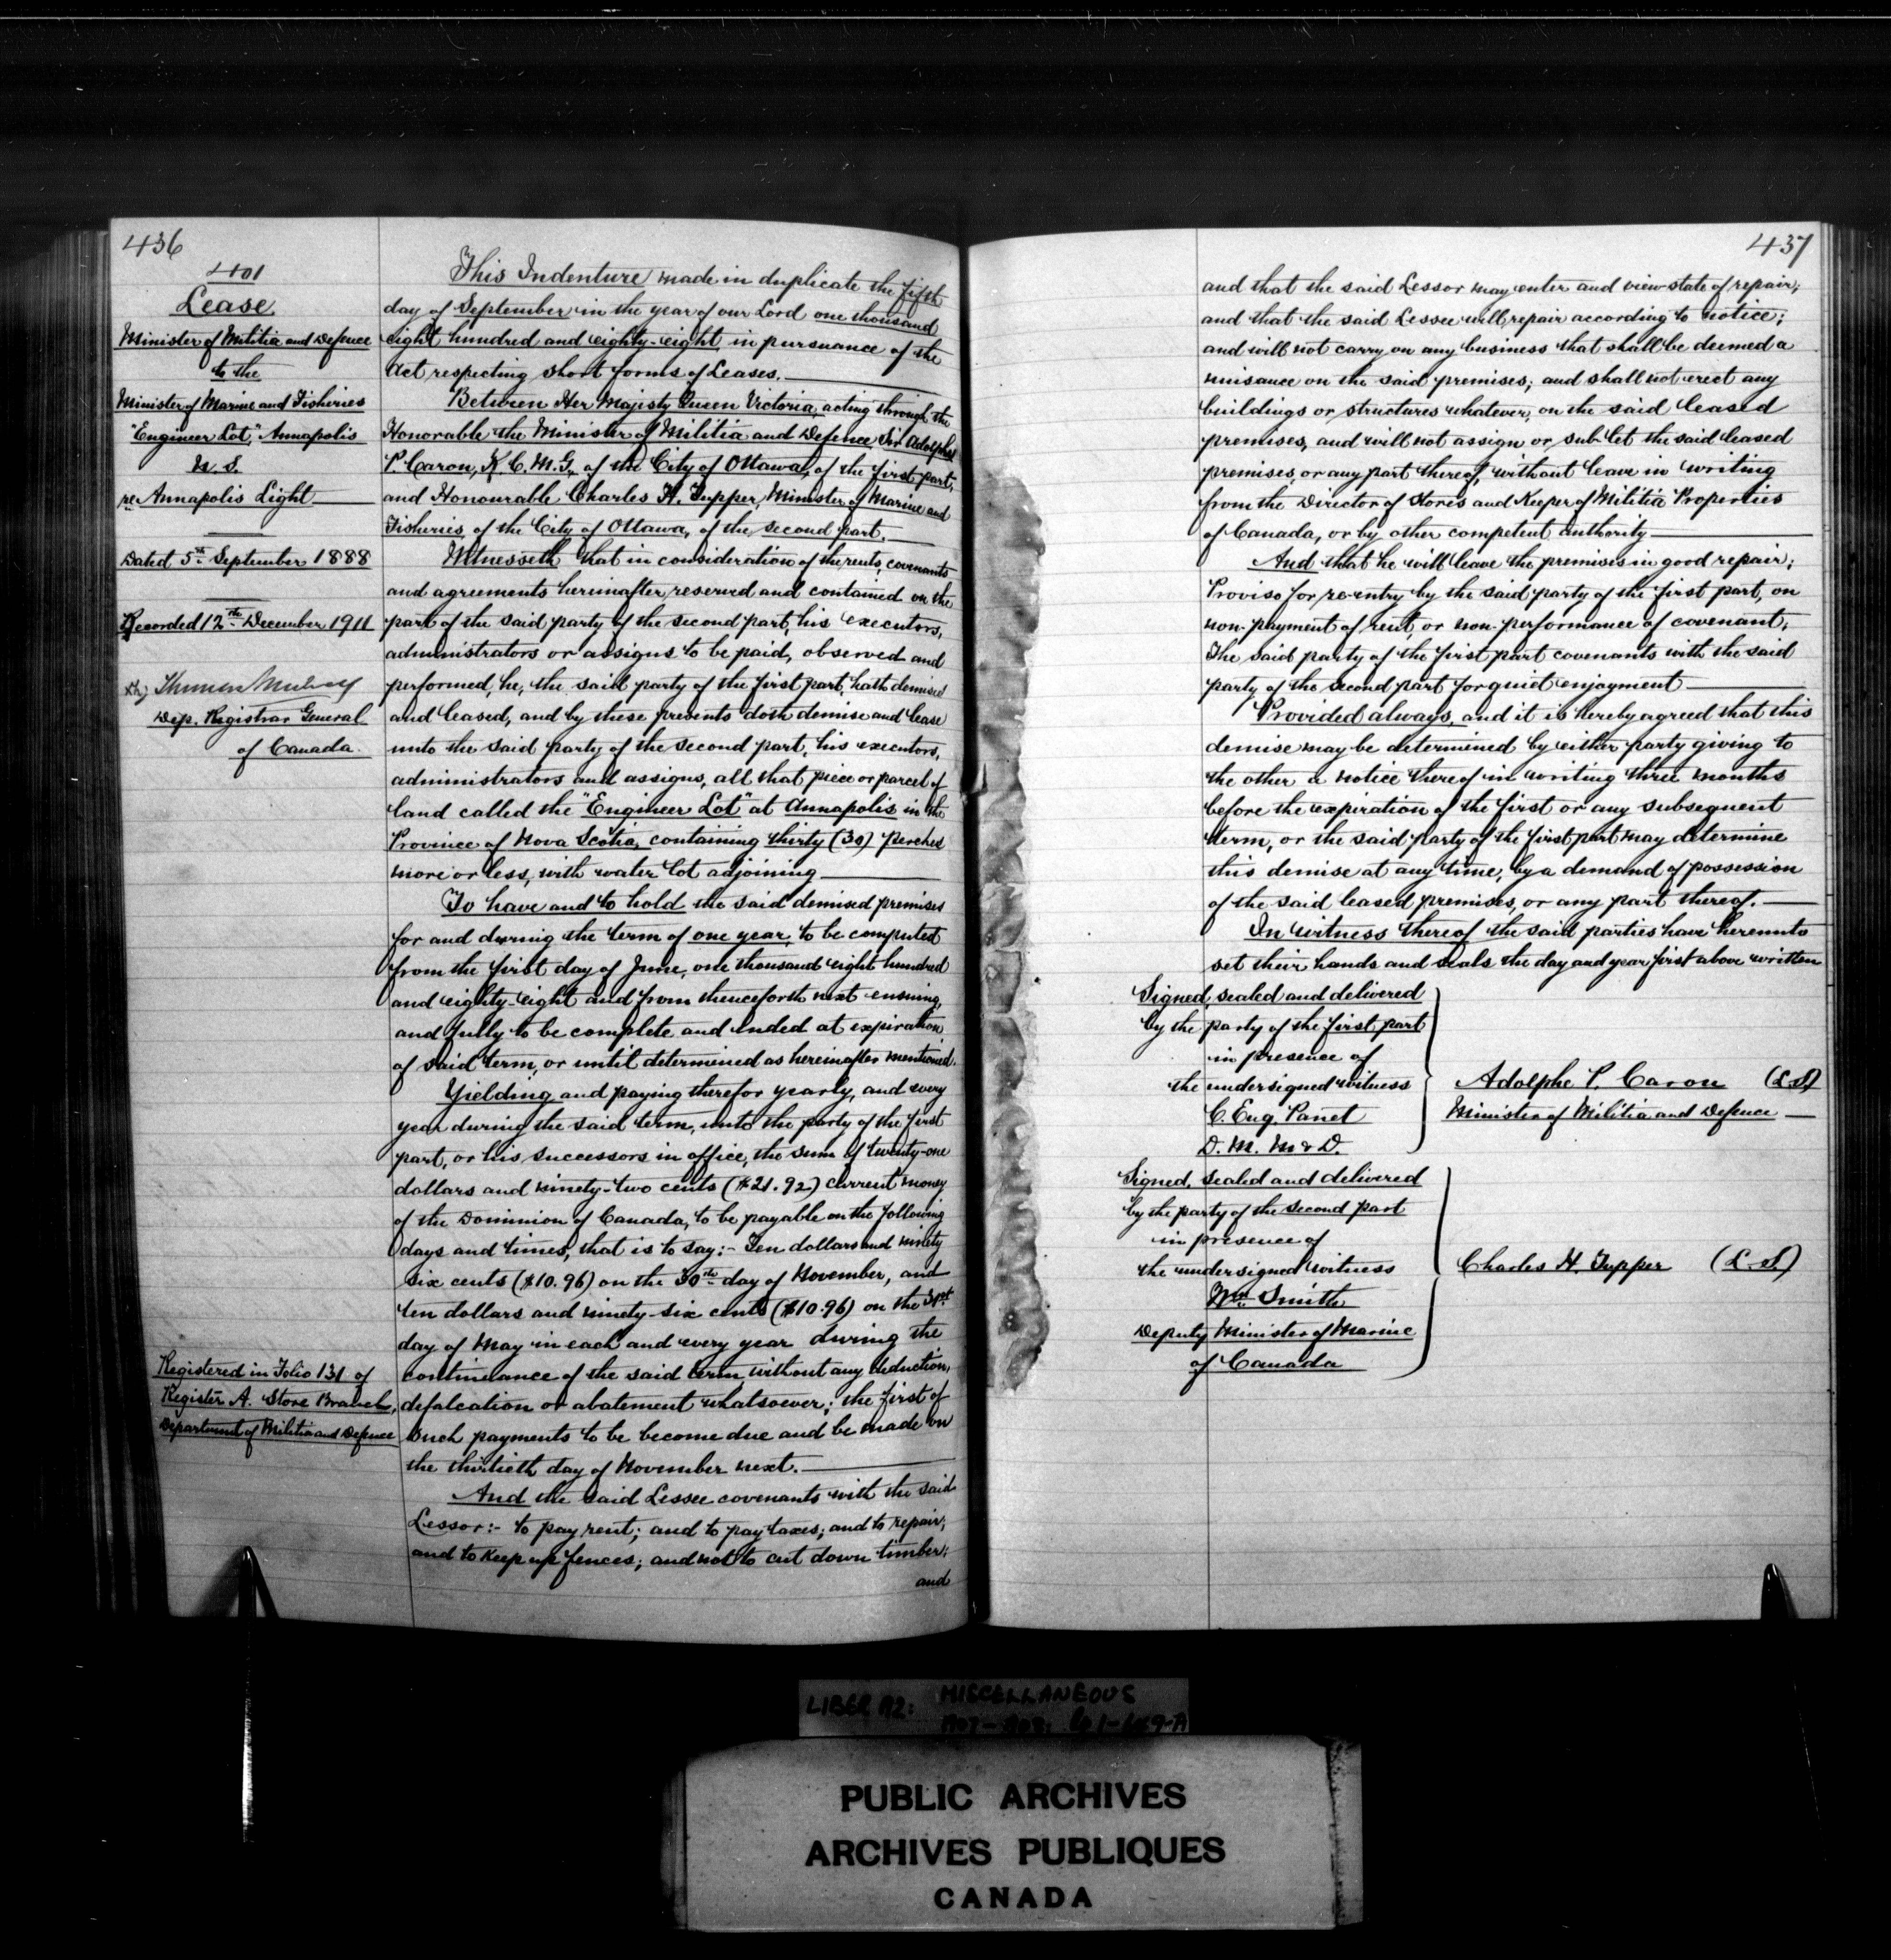 436
401
Lease
Minister of Militia and Defence
to the
Minister of Marine and Fisheries
"Engineer Lot," Annapolis
N. S.
re Annapolis Light
Dated 5th September 1888
Recorded 12th December 1911
Dep. Registrar General
of Canada.
Registered in Folio 131 of
Register A. Store Branch,
Department of Militia and Defence
This Indenture made in duplicate the fifth
day of September in the year of our Lord one thousand
eight hundred and eighty-eight in pursuance of the
Act respecting short forms of Leases.
Between Her Majesty Queen Victoria, acting through the
Honorable the Minister of Militia and Defence Sir Adolphe
P. Caron, K.C.M.G., of the City of Ottawa, of the first part,
and Honourable Charles H. Tupper, Minister of Marine and
Fisheries, of the City of Ottawa, of the second part.
Witnesseth that in consideration of the rents, covenants
and agreements hereinafter reserved and contained on the
part of the said party of the second part, his executors,
administrators or assigns to be paid, observed and
performed, he, the said party of the first part, hath demised
and leased, and by these presents doth demise and lease
unto the said party of the second part, his executors,
administrators and assigns, all that piece or parcel of
land called the "Engineer Lot" at Annapolis in the
Province of Nova Scotia, containing thirty (30) perches
more or less, with water lot adjoining
To have and to hold the said demised premises
for and during the term of one year, to be computed
from the first day of June, one thousand eight hundred
and eighty-eight and from thenceforth next ensuing,
and fully to be complete and ended at expiration
of said term, or until determined as hereinafter mentioned.
Yielding and paying therefor yearly, and every
year during the said term, unto the party of the first
part, or his successors in office, the sum of twenty-one
dollars and ninety-two cents ($21.92) current money
of the Dominion of Canada, to be payable on the following
days and times, that is to say:- Ten dollars and ninety
six cents ($10.96) on the 30th day of November, and
ten dollars and ninety-six cents ($10.96) on the 31st
day of May in each and every year during the
continuance of the said term without any deduction,
defalcation or abatement whatsoever; the first of
such payments to be become due and be made on
the thirtieth day of November next.
And the said Lessee covenants with the said
Lessor:- to pay rent; and to pay taxes; and to repair;
and to keep up fences; and not to cut down timber;
and
437
and that the said Lessor may enter and view state of repair;
and that the said Lessee will repair according to notice;
and will not carry on any business that shall be deemed a
nuisance on the said premises; and shall not erect any
buildings or structures whatever, on the said leased
premises, and will not assign or sub-let the said leased
premises, or any part thereof, without leave in writing
from the Director of Stores and Keeper of Militia Properties
of Canada, or by other competent authority
And that he will leave the premises in good repair;
Proviso for re-entry by the said party of the first part, on
non-payment of rent, or non-performance of covenant;
The said party of the first part covenants with the said
party of the second part for quiet enjoyment
Provided always, and it is hereby agreed that this
demise may be determined by either party giving to
the other a notice thereof in writing three months
before the expiration of the first or any subsequent
term, or the said party of the first part may determine
this demise at any time, by a demand of possession
of the said leased premises, or any part thereof.
In witness thereof the said parties have hereunto
set their hands and seals the day and year first above written
Signed, sealed and delivered
by the party of the first part
in presence of
the undersigned witness
C. Eug. Panet
D. M. M & D.
Adolphe P. Caron (L.S)
Minister of Militia and Defence
Signed, sealed and delivered
by the party of the second part
in presence of
the undersigned witness
Wm Smith
Deputy Minister of Marine
of Canada
Charles H. Tupper (L.S)
LIBER A2: MISCELLANEOUS
PUBLIC ARCHIVES
ARCHIVES PUBLIQUES
CANADA